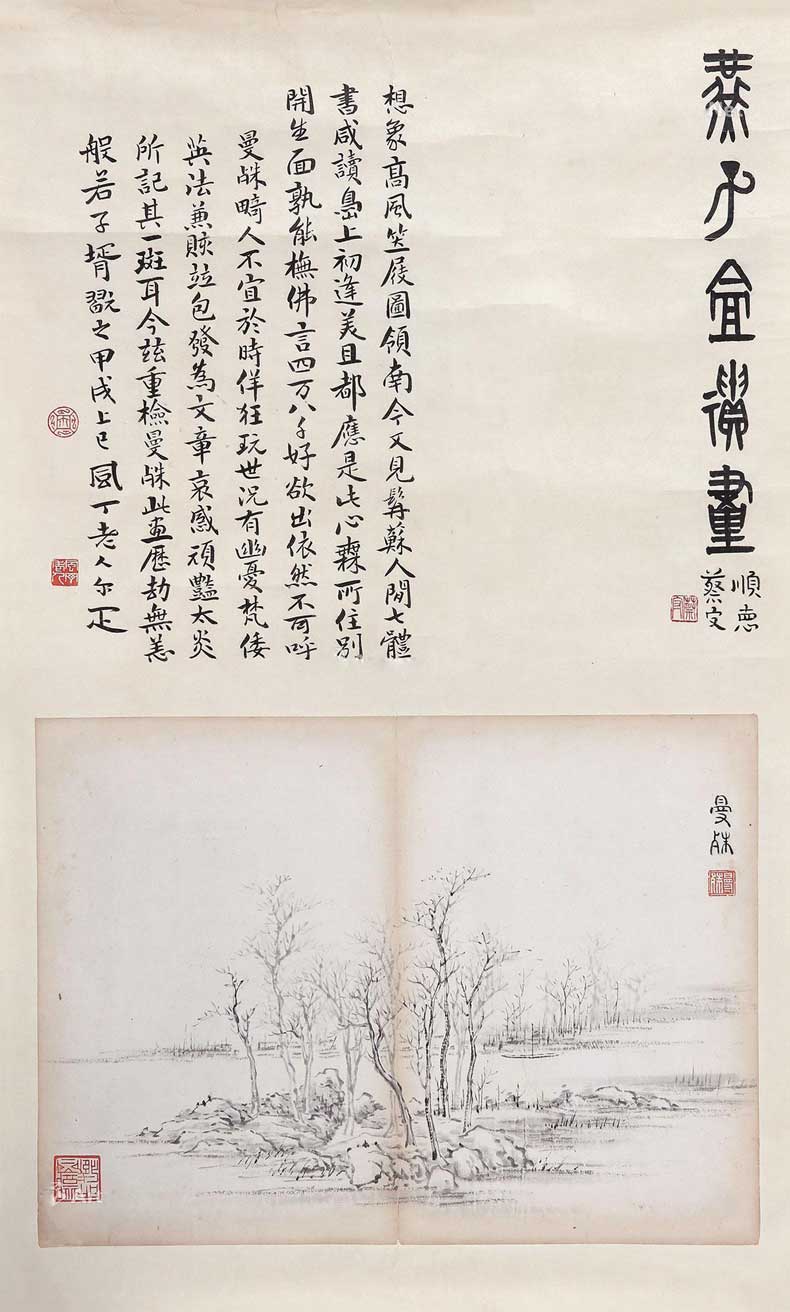 燕子盦遺畫
順悳
蔡守
想象高風笠屐圖領南今又見髯蘇人間七體
書咸讀島上初逢美且都應是此心無所住別
開生面孰能橅佛言四万八千好欲出依然不可呼
曼殊畸人不宜於時佯狂玩世況有幽憂梵倭
英法兼賅竝包發為文章哀感頑豔太炎
所記其一斑耳今茲重檢曼殊此畫歷劫無恙
般若子壻翫之甲戌上巳風丁老人尔疋
曼殊